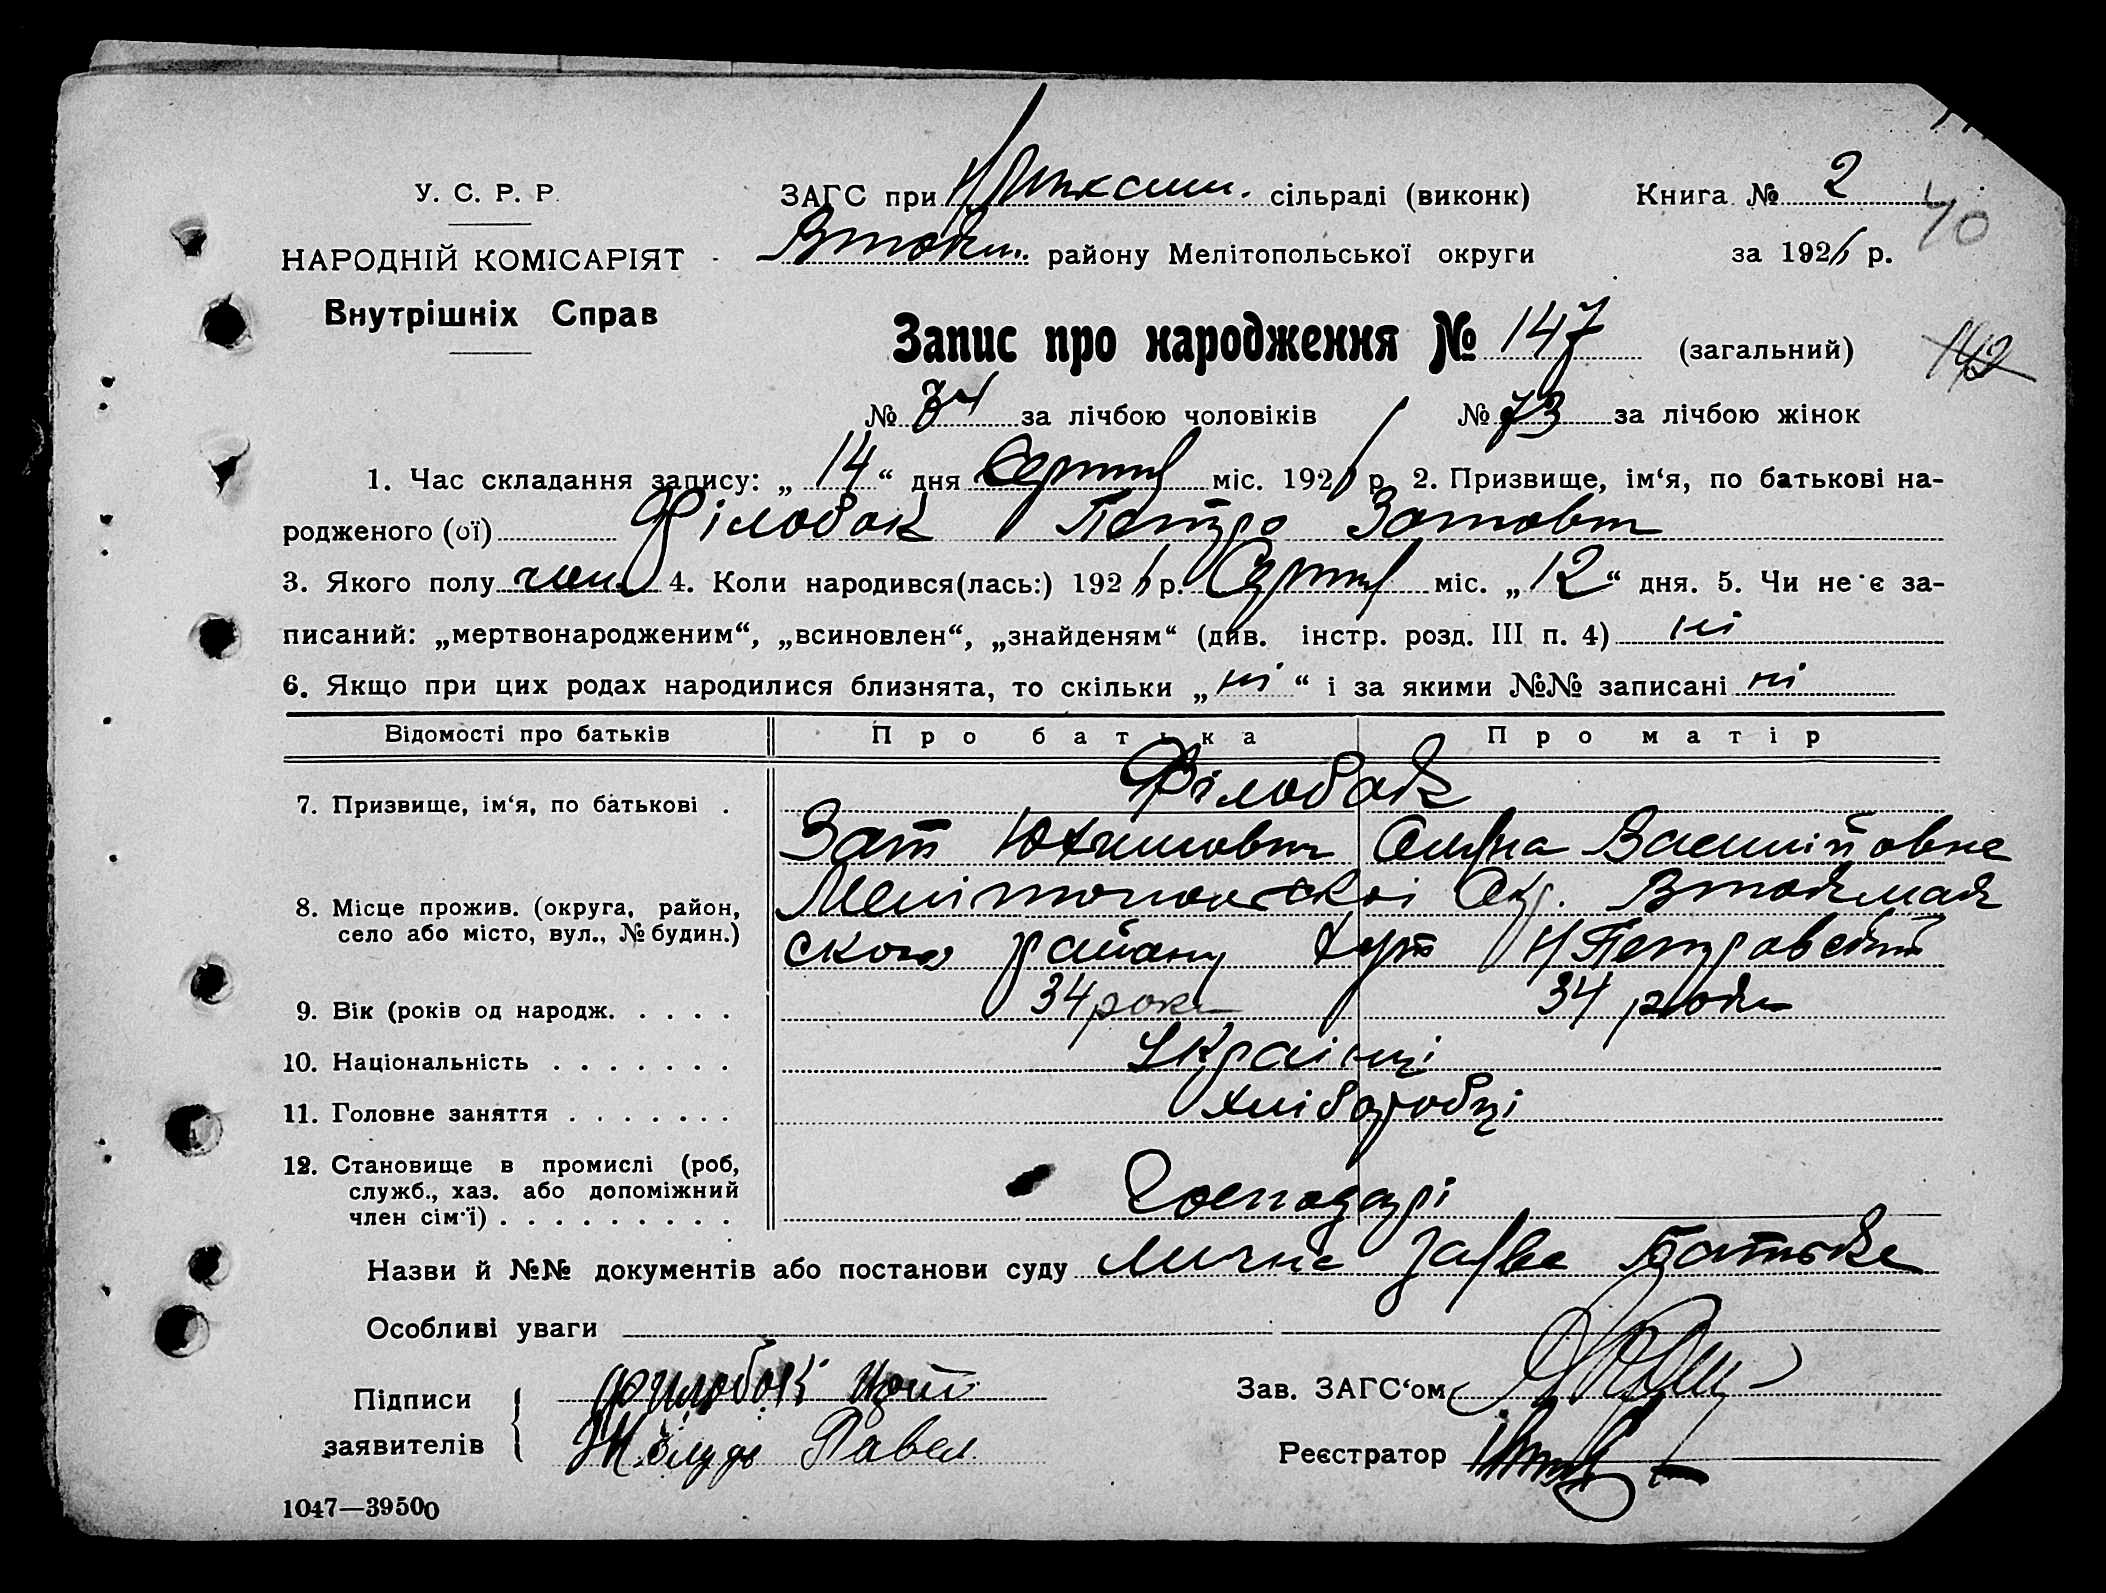 У. С. Р. Р.
НАРОДНІЙ КОМІСАРІЯТ
Внутрішніх Справ
ЗАГС при сільраді (виконк)
району Мелітопольської округи
Книга № 2
за 192 р.
40
Запис про народження № 147 (загальний)
142
№ 74 за лічбою чоловіків № 73 за лічбою жінок
1. Час складання запису: „ 14 “ дня Серпня міс. 192 р. 2. Призвище, ім‘я, по батькові на-
родженого (ої) Філобок Петро Зотович
3. Якого полу чол. 4. Коли народився(лась:) 192 р. Серпня міс. „ 12 “ дня. 5. Чи не є за-
писаний: „мертвонародженим“, „всиновлен“, „знайденям“ (див. інстр. розд. III п. 4) ні
6. Якщо при цих родах народилися близнята, то скільки „ ні “ і за якими №№ записані ні
Відомості про батьків Про батька Про матір
7. Призвище, ім‘я, по батькові . Філобок
Зот Юхимович Олена Василійовна
8. Місце прожив. (округа, район,
село або місто, вул., № будин.)
Мелітопольскоі Окр.
ского району Хут
9. Вік (років од народж. . . . . 34 роки 34 роки
10. Національність . . . . . . . Украінці
11. Головне заняття . . . . . . . хліборобці
12. Становище в промислі (роб,
служб., хаз. або допоміжний
член сім‘ї) . . . . . . . . . Господарі
Назви й №№ документів або постанови суду Лична заява Батька
Особливі уваги
Підписи
заявителів
Филобок Изот
Жолудь Павел
Зав. ЗАГС‘ом
Реєстратор
1047—39500